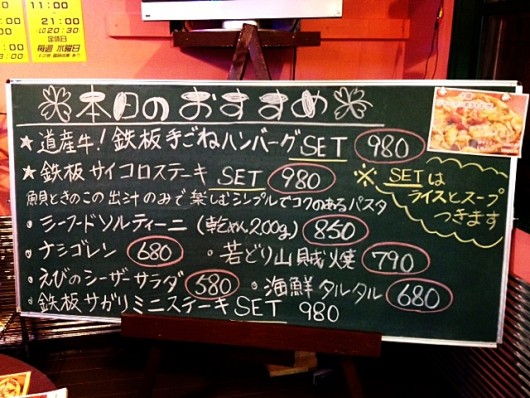 11:00
21:00
LO 20:30
定休日
毎週 水曜日
本日のおすすめ
★道産牛!鉄板手ごねハンバーグSET 980
★鉄板サイコロステーキ SET 980
※ SETは
ライスとスープ
つきます
魚貝ときのこの出汁のみで楽しむシンプルでコクのあるパスタ
・シーフードソルティーニ(乾めん200g) 850
・ナシゴレン 680
・若どり山賊焼 790
・えびのシーザーサラダ 580
・海鮮タルタル 680
・鉄板サガリミニステーキSET 980